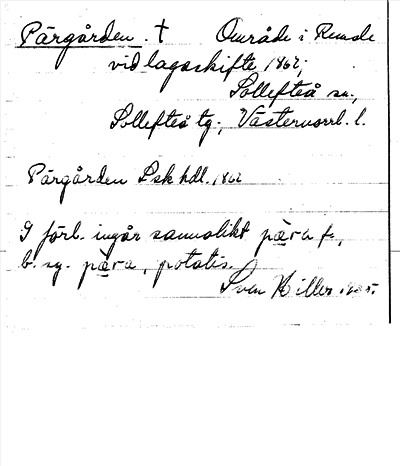 Pärgården. † Område i Remsle
vid lagaskifte 1862;
Sollefteå sn.,
Sollefteå tg., Västernorrl. l.
Pärgården Lsk hdl. 1862
I förl. ingår sannolikt pära f.,
b. sg. pära, potatis.
Sven Hiller